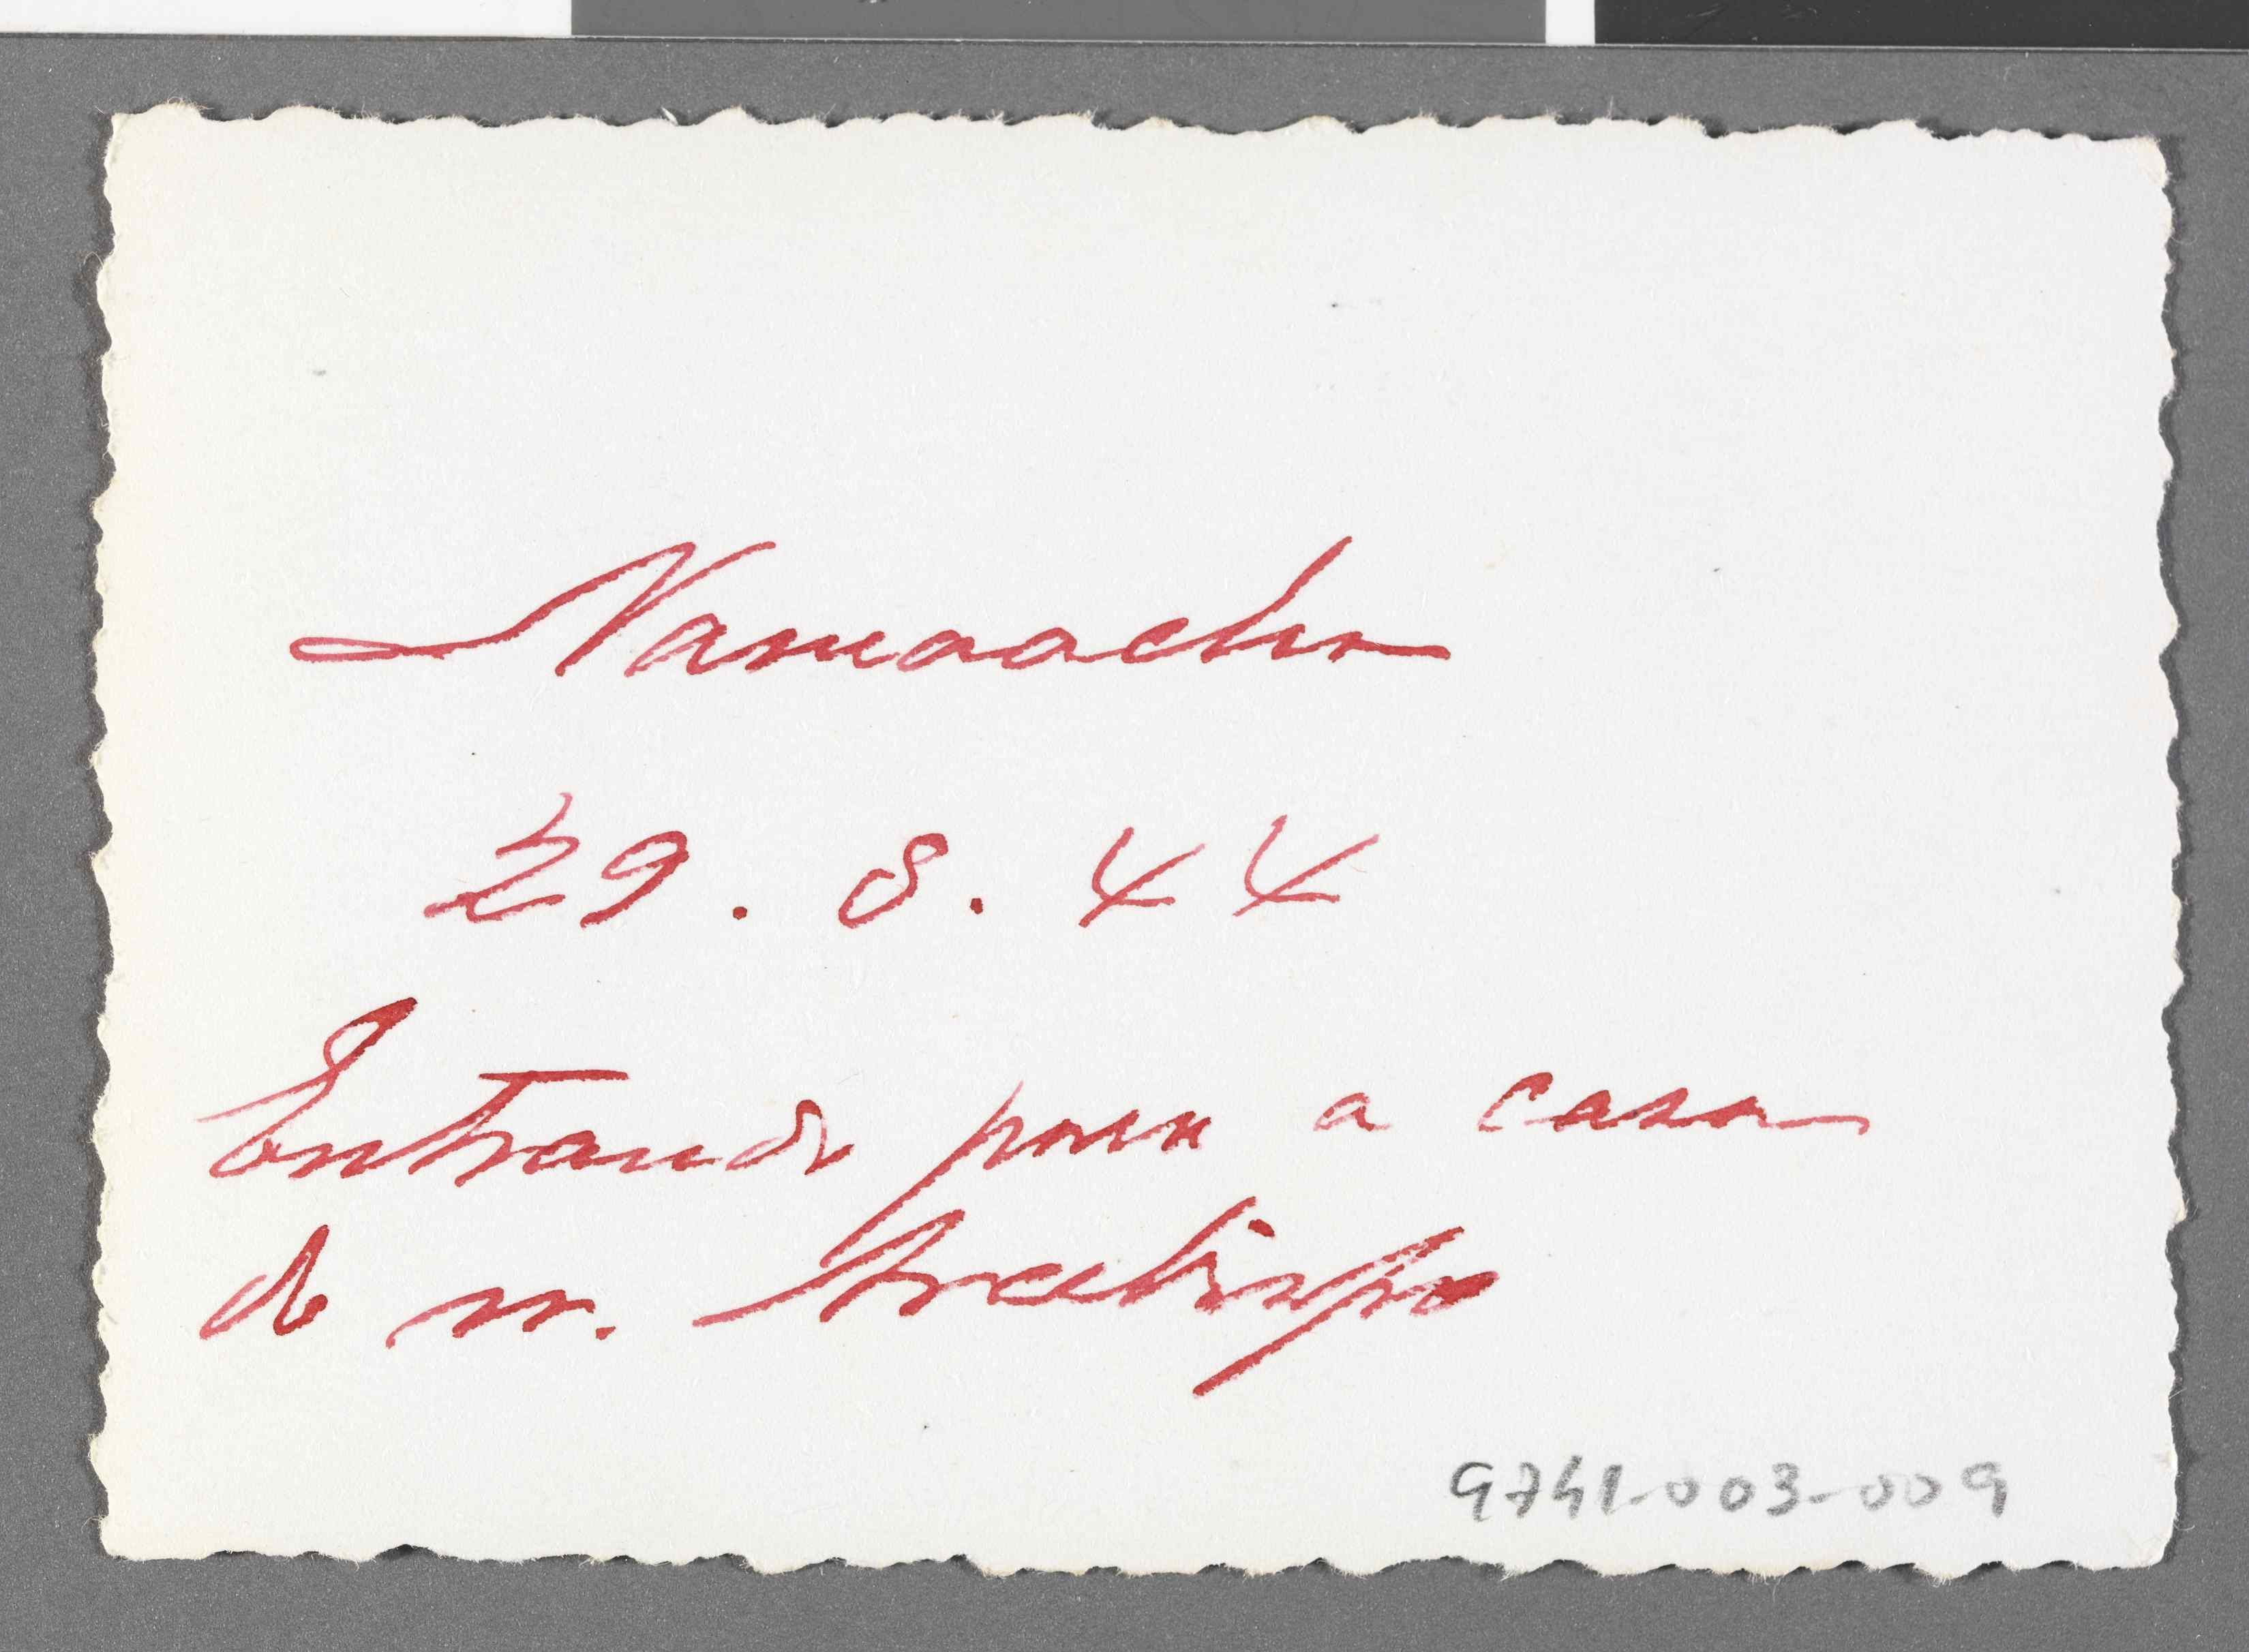 Namaacha
29.8.44
Entrando para a casa
do sr. Arcebispo
9741-003-009